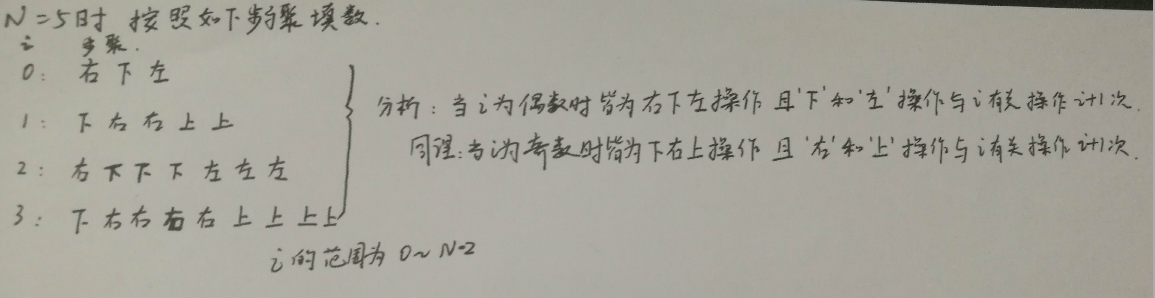 N=5时 按照如下步骤填数.
i 步骤.
0: 右 下 左
1: 下 右 右 上 上
2: 右 下 下 下 左 左 左
3: 下 右 右 右 右 上 上 上 上
i的范围为 0~N-2
分析: 当i为偶数时皆为右下左操作 且'下'和'左'操作与i有关操作i+1次.
同理: 当i为奇数时皆为下右上操作 且'右'和'上'操作与i有关操作i+1次.